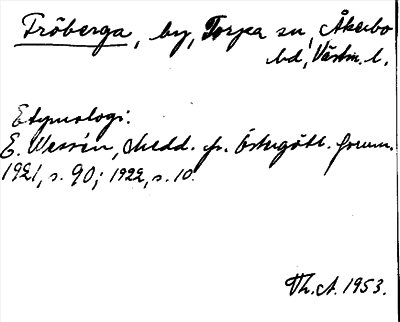 Fröberga, by, Torpa sn, Åkerbo
hd, Västm. l.
Etymologi:
E. Wessén, Medd. fr. Östergötl. fornm.
1921, s. 90; 1922, s. 10.
Th. A. 1953.